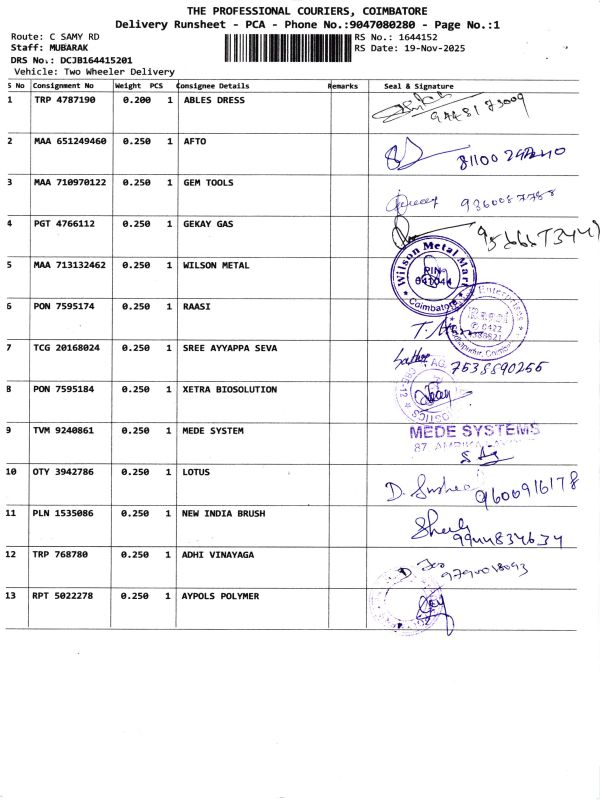 THE PROFESSIONAL COURIERS, COIMBATORE
Delivery Runsheet - PCA - Phone No.:9047080280 - Page No.:1
Route: C SAMY RD
RS No.: 1644152
Staff: MUBARAK
RS Date: 19-Nov-2025
DRS No.: DCJB164415201
Vehicle: Two Wheeler Delivery
S No Consignment No Weight PCS Consignee Details Remarks Seal & Signature
1 TRP 4787190 0.200 1 ABLES DRESS
9448173009
2 MAA 651249460 0.250 1 AFTO
3 MAA 710970122 0.250 1 GEM TOOLS
9360087788
4 PGT 4766112 0.250 1 GEKAY GAS
5 MAA 713132462 0.250 1 WILSON METAL
Wilson Metal Mart
PIN
641044
Coimbatore
6 PON 7595174 0.250 1 RAASI
Enterprises
0422
7 TCG 20168024 0.250 1 SREE AYYAPPA SEVA
7538890255
8 PON 7595184 0.250 1 XETRA BIOSOLUTION
9 TVM 9240861 0.250 1 MEDE SYSTEM
MEDE SYSTEMS
87
10 OTY 3942786 0.250 1 LOTUS
D.
9600916178
11 PLN 1535086 0.250 1 NEW INDIA BRUSH
9944834634
12 TRP 768780 0.250 1 ADHI VINAYAGA
9790018093
13 RPT 5022278 0.250 1 AYPOLS POLYMER